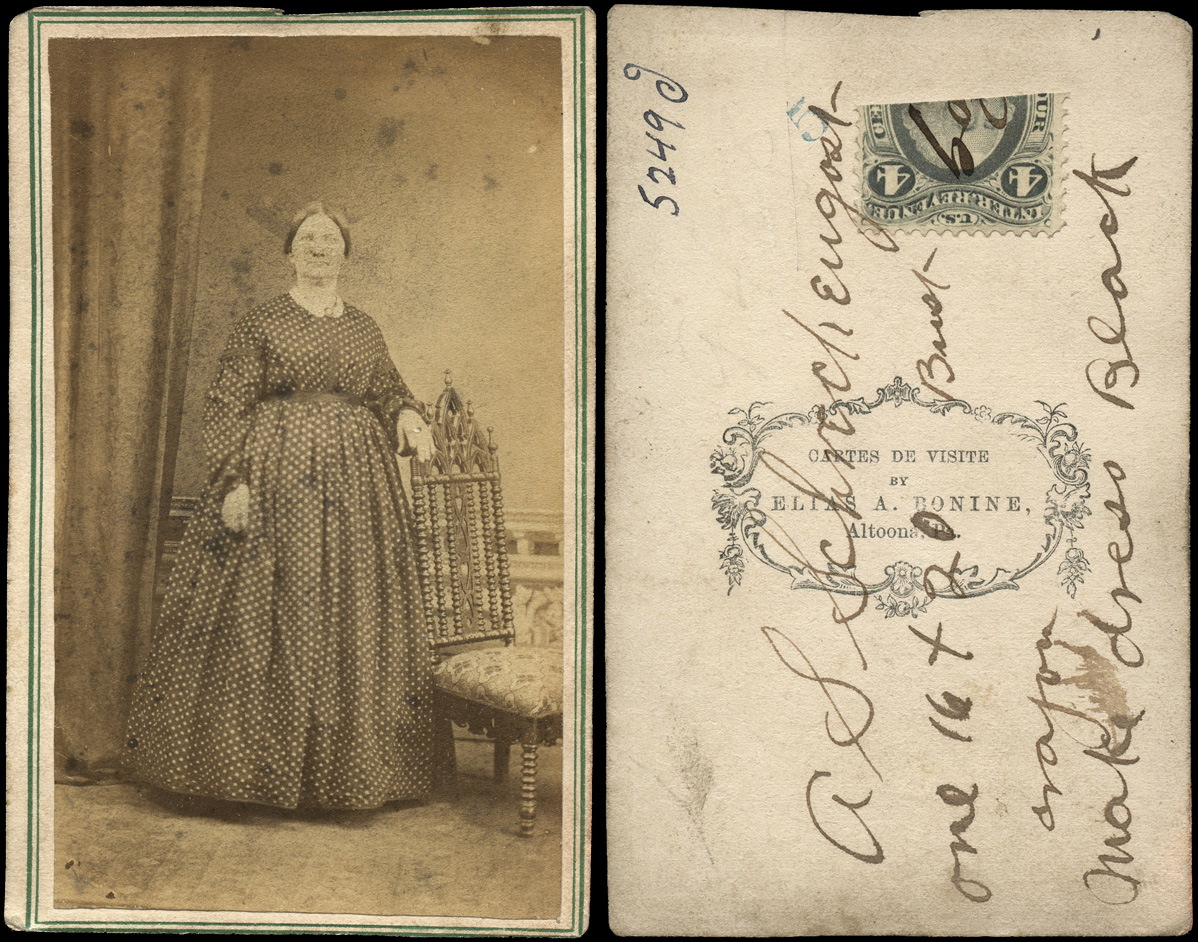 5249
5
A S Schmchengost
one 16 x 20 Bust
crayon
Make dress Black
CARTES DE VISITE
BY
ELIAS A. BONINE,
Altoona, Pa.
U.S.
INTER. REVENUE
4
4
69